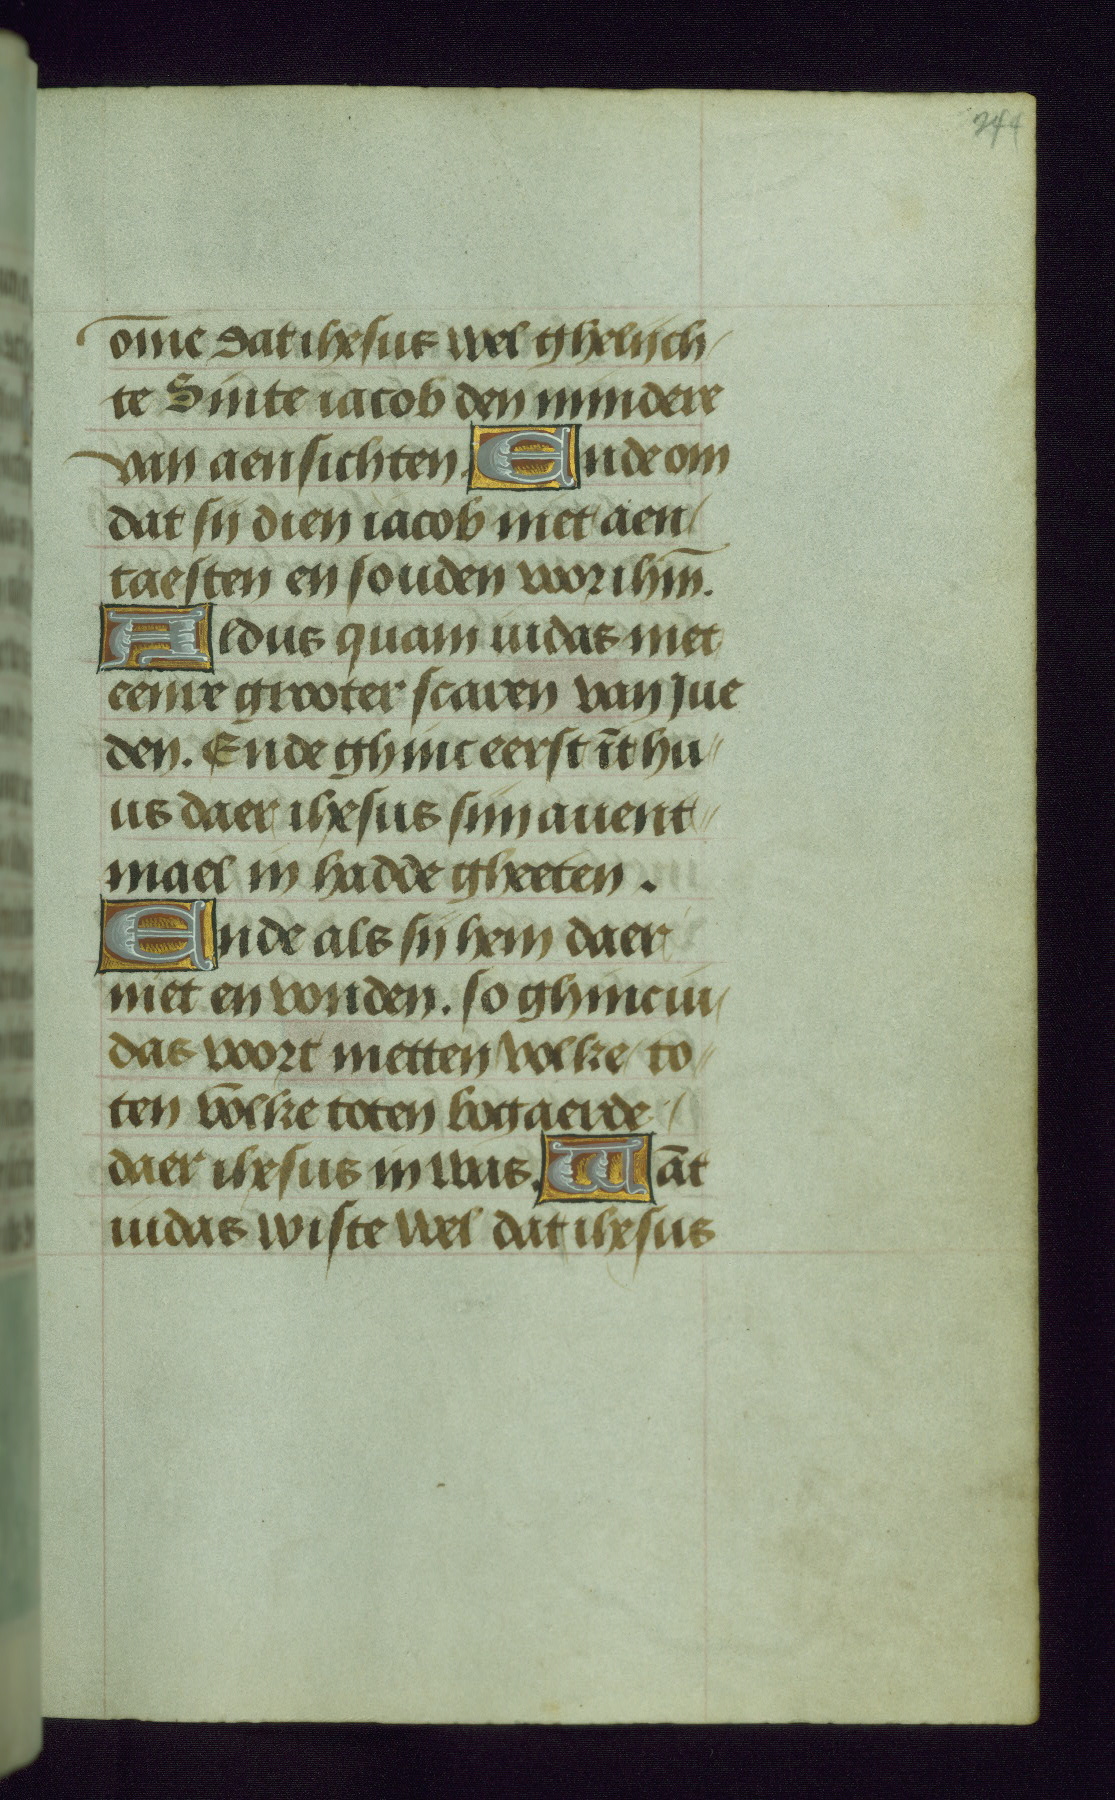 244
om̄e dat ihesus wel ghelijch
te Sinte iacob den mindere
van aensichten. Ende om
dat sij dien iacob niet aen
taesten en souden voor ihm̄.
Aldus quam iudas met
eenre grooter scaren van jue
den. Ende ghinc eerst īt hu
us daer ihesus sijn auent
mael in hadde gheeten.
Ende als sij hem daer
niet en vonden. so ghinc iu
das voort metten volke to
ten vōlke toten bogaerde
daer ihesus in was. Wāt
iudas wiste wel dat ihesus